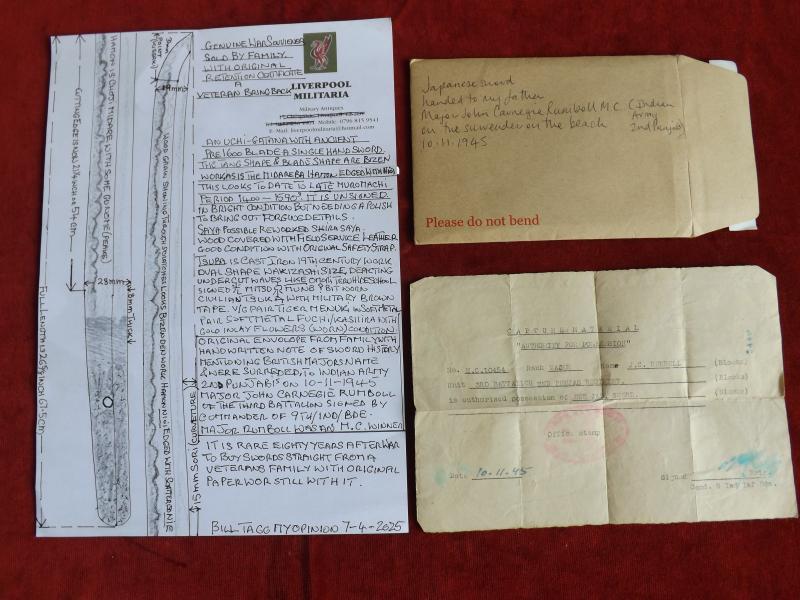 GENUINE WAR SOUVIENER
SOLD BY FAMILY
WITH ORIGINAL
RETENTION CERTIFICATE
A
VETERAN BRING BACK
LIVERPOOL
MILITARIA
Military Antiques
Mobile 0796 815 9541
E-Mail: liverpoolmilitaria@hotmail.com
AN UCHI-GATANA WITH ANCIENT
PRE 1600 BLADE A SINGLE HAND SWORD.
THE TANG SHAPE & BLADE SHAPE ARE BIZEN
WORK AS IS THE MIDAREBA HAMON EDGED WITH NIOI
THIS LOOKS TO DATE TO LATE MUROMACHI
PERIOD 1400-1590S. IT IS UNSIGNED
IN BRIGHT CONDITION BUT NEEDING A POLISH
TO BRING OUT FORGING DETAILS.
SAYA POSSIBLE REWORKED SHIRA SAYA
WOOD COVERED WITH FIELD SERVICE LEATHER
GOOD CONDITION WITH ORIGINAL SAFETY STRAP.
TSUBA IS CAST IRON 19TH CENTURY WORK
OVAL SHAPE WAKIZASHI SIZE, DEPICTING
UNDERCUT WAVES LIKE OMORI TERUHIDE SCHOOL
CIVILIAN TSUKA WITH MILITARY BROWN
TAPE. V/G PAIR TIGER MENUKI IN SOFT METAL
PAIR SOFT METAL FUCHI/KASHIRA WITH
GOLD INLAY FLOWERS (WORN) CONDITION
ORIGINAL ENVOLOPE FROM FAMILY WITH
HANDWRITTEN NOTE OF SWORD HISTORY
MESTIONING BRITISH MAJORS NAME
& WERE SURREDED TO INDIAN ARMY
2ND PUNJABIS ON 10-11-1945
MAJOR JOHN CARNEGIE RUMBOLL
OF THE THIRD BATTALION SIGNED BY
COMMANDER OF 9TH/IND/BDE.
MAJOR RUMBOLL WAS AN M.C. WINNER
IT IS RARE EIGHTY YEARS AFTER WAR
TO BUY SWORDS STRAIGHT FROM A
VETERANS FAMILY WITH ORIGINAL
PAPERWORK STILL WITH IT.
BILL TAGG MY OPINION 7-4-2025
HAMON IS CHOJI MIDARE WITH SOME GUNOME (PEAKS)
CUTTING EDGE IS NOW 21 1/4 INCH OR 54CM
28MM
8MM THICK
FULL LENGTH IS 26 5/8 INCH 67.5CM
15MM SORI (CURVETURE)
Japanese sword
handed to my father
Major John Carnegie Rumboll M.C. (Indian
Army
2nd Punjabis)
on the surrender on the beach
10.11.1945
Please do not bend
CAPTURED MATERIAL
"AUTHORITY FOR POSSESSION"
No. Rank MAJOR Name J.C. RUMBOLL (Blocks)
Unit 3RD BATTALION 2ND PUNJAB REGIMENT. (Blocks)
is authorised possession of ONE JAP SWORD. (Blocks)
Office stamp
Date 10-11-45
Signed